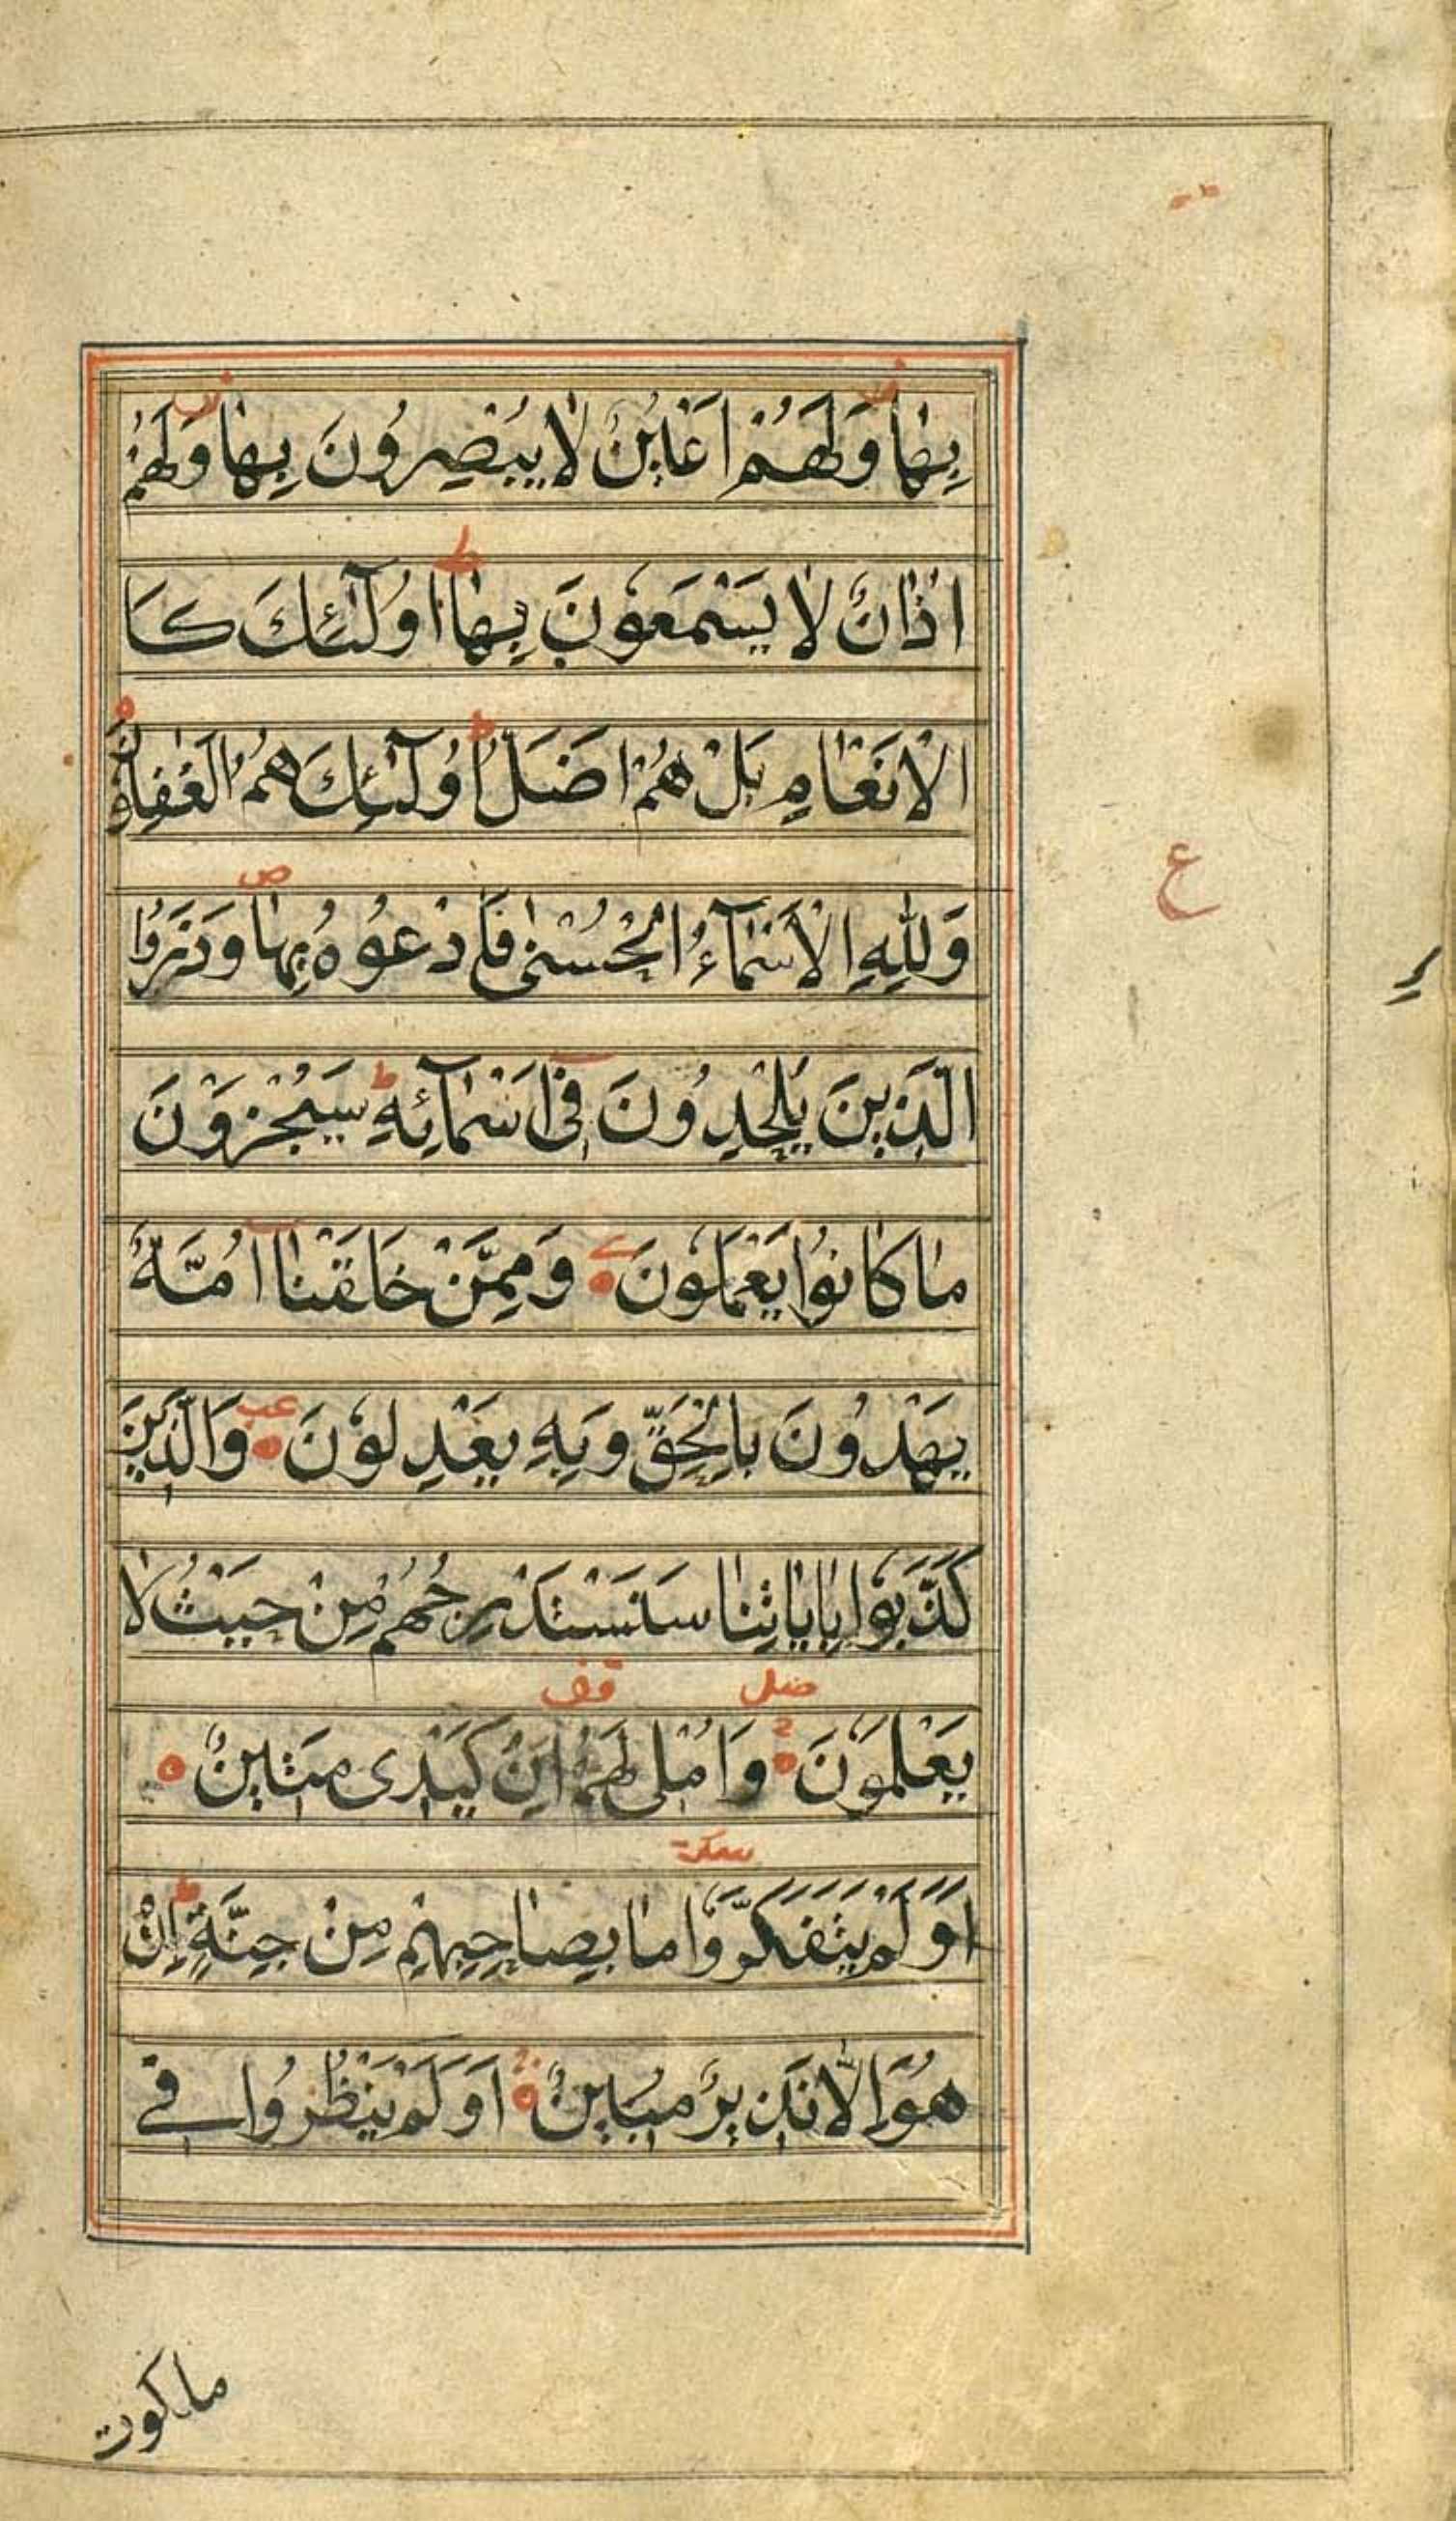 بِهَا وَلَهُمْ اَعْيُنٌ لَا يُبْصِرُونَ بِهَا وَلَهُمْ
اٰذَانٌ لَا يَسْمَعُونَ بِهَا ط اُولٰٓئِكَ كَا
الْاَنْعَامِ بَلْ هُمْ اَضَلُّ ط اُولٰٓئِكَ هُمُ الْغٰفِلُونَ
ع
وَلِلّٰهِ الْاَسْمَآءُ الْحُسْنٰى فَادْعُوهُ بِهَا ص وَذَرُوا
الَّذِينَ يُلْحِدُونَ فِىٓ اَسْمَآئِهِ ط سَيُجْزَوْنَ
مَا كَانُوا يَعْمَلُونَ وَمِمَّنْ خَلَقْنَآ اُمَّةٌ
يَهْدُونَ بِالْحَقِّ وَبِهِ يَعْدِلُونَ وَالَّذِينَ
كَذَّبُوا بِاٰيَاتِنَا سَنَسْتَدْرِجُهُمْ مِنْ حَيْثُ لَا
يَعْلَمُونَ وَاُمْلِى لَهُمْ اِنَّ كَيْدِى مَتِينٌ
اَوَلَمْ يَتَفَكَّرُوا مَا بِصَاحِبِهِمْ مِنْ جِنَّةٍ ط اِنْ
هُوَ اِلَّا نَذِيرٌ مُبِينٌ اَوَلَمْ يَنْظُرُوا فِى
ملكوت